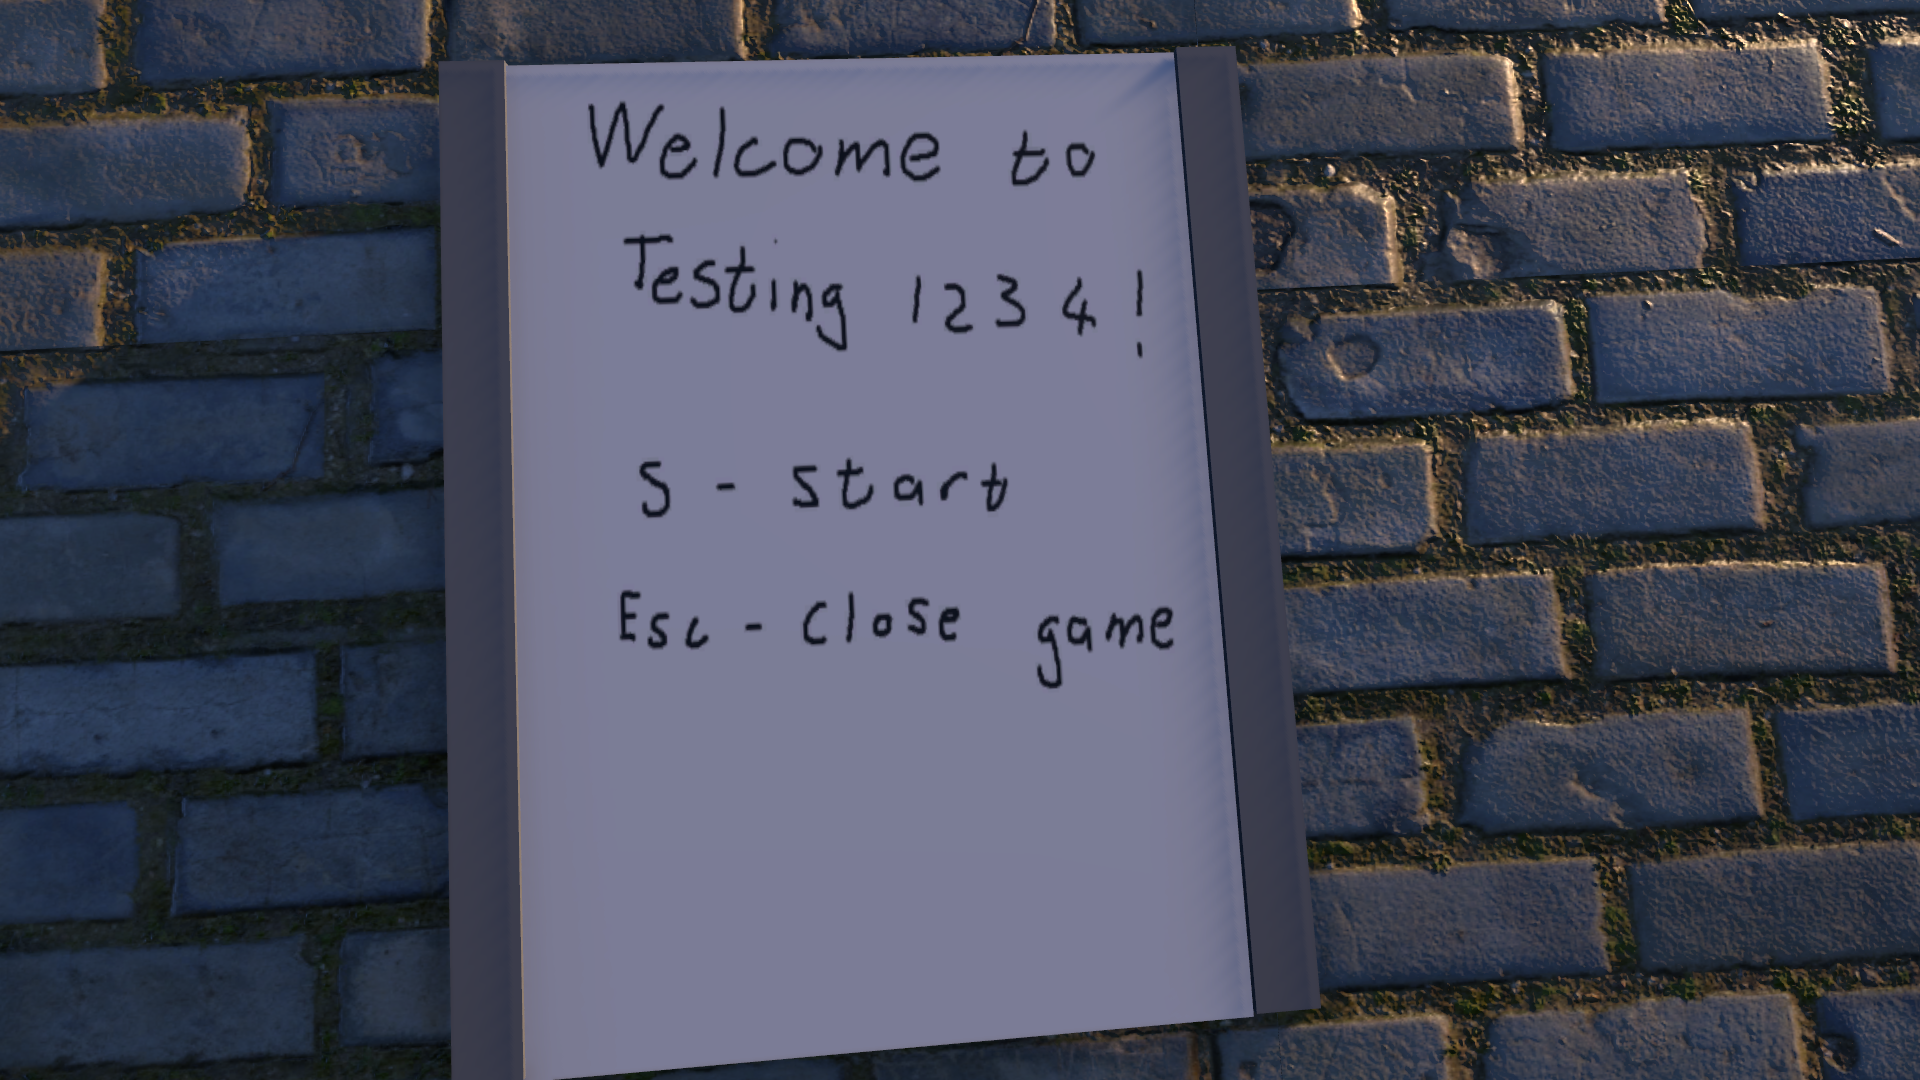 Welcome to
Testing 1234!
S - start
Esc - close game